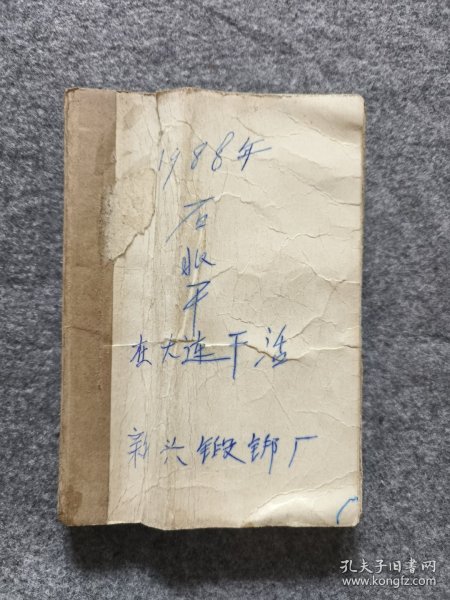 1988年
石
平
在大连干活
新兴锻铆厂
孔夫子旧书网
www.kongfz.com